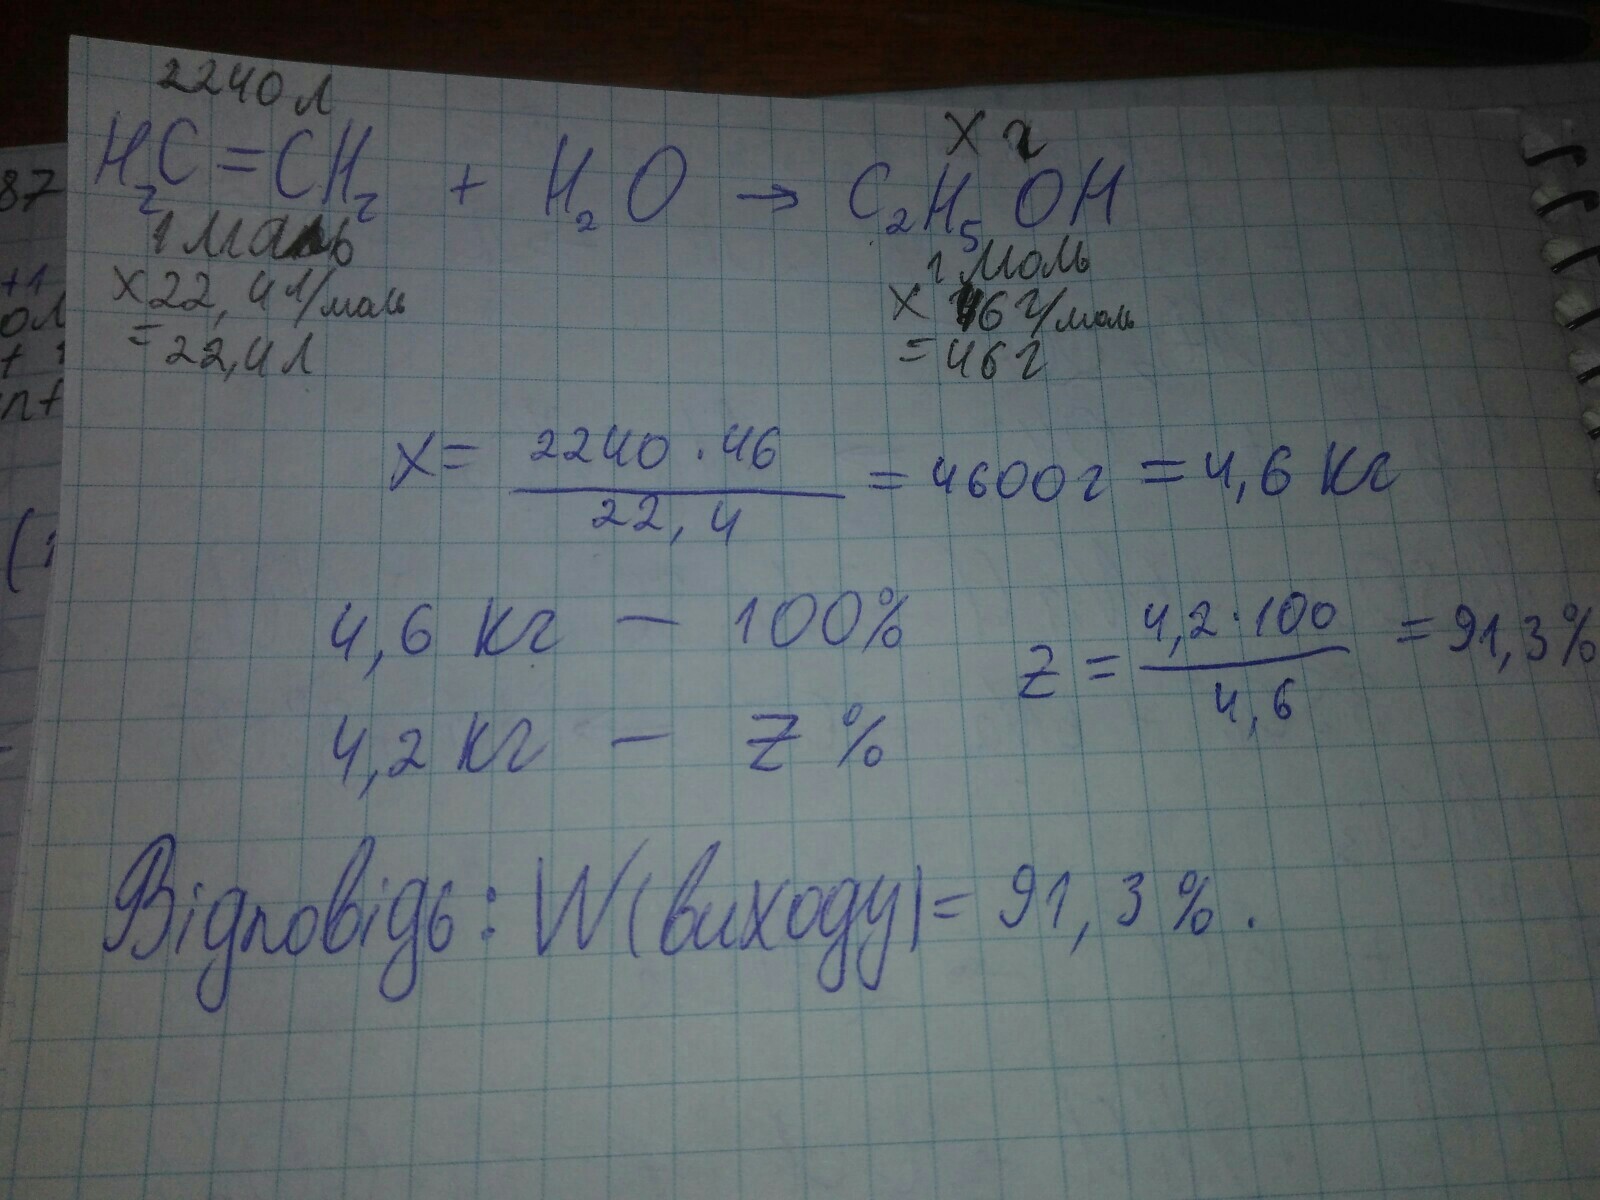 2240 л
H₂C=CH₂ + H₂O → C₂H₅OH
x г
1 моль
x 22,4 л/моль
= 22,4 л
1 моль
x 46 г/моль
= 46 г
x = 2240 · 46 / 22,4 = 4600 г = 4,6 кг
4,6 кг — 100%
4,2 кг — z %
z = 4,2 · 100 / 4,6 = 91,3%
Відповідь: W(виходу) = 91,3 %.
87
+1